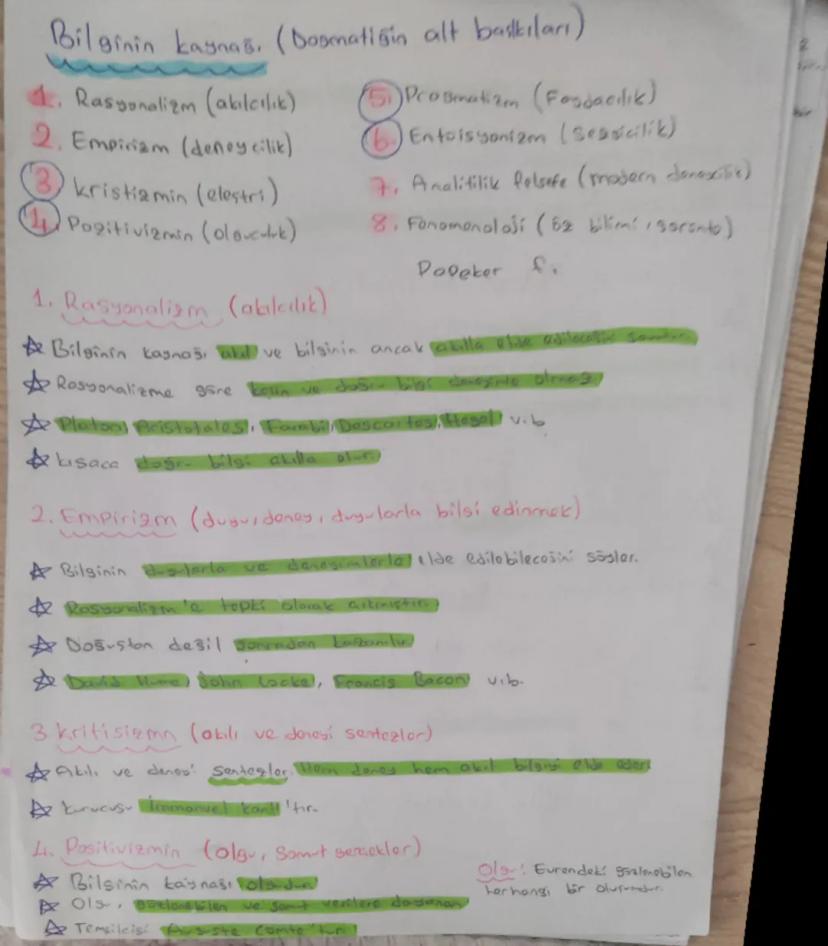 Bilginin kaynağı (Dogmatiğin alt baskıları)
1. Rasyonalizm (akılcılık)
2. Empirizm (deneycilik)
3. kristizmin (eleştri)
4. Pozitivizmin (olguculuk)
5. Pragmatizm (Faydacılık)
6. Entoisyonizm (Sezgicilik)
7. Analitilik felsefe (modern deneycilik)
8. Fenomenoloji (öz bilimi, )
1. Rasyonalizm (akılcılık)
☆ Bilginin kaynağı akıl ve bilginin ancak akılla elde edileceğini savunur.
☆ Rasyonalizme göre kesin ve doğru bilgi deneyimle olmaz
☆ Platon, Aristotales, Farabi, Descartes, Hegel v.b
☆ kısaca doğru bilgi akılla olur.
2. Empirizm (duyu, deney, duyularla bilgi edinmek)
☆ Bilginin duyularla ve deneyimlerle elde edilebileceğini söyler.
☆ Rasyonalizm'e tepki olarak çıkmıştır.
☆ Doğuştan değil sonradan kazanılır
☆ David Hume, John Locke, Francis Bacon v.b.
3 kritisizmn (akılı ve deneyi sentezler)
☆ Akılı ve deneyi sentezler. Hem deney hem akıl bilgiyi elde eder.
☆ kurucusu Immanuel kant'tır.
4. Positivizmin (olgu, somut gerçekler)
☆ Bilginin kaynağı olgudur.
☆ Olgu, gözlenebilen ve somut verilere dayanan
☆ Temsilcisi Auguste Comte'tur.
Olgu: Evrendeki gözlenebilen
herhangi bir oluşumdur.